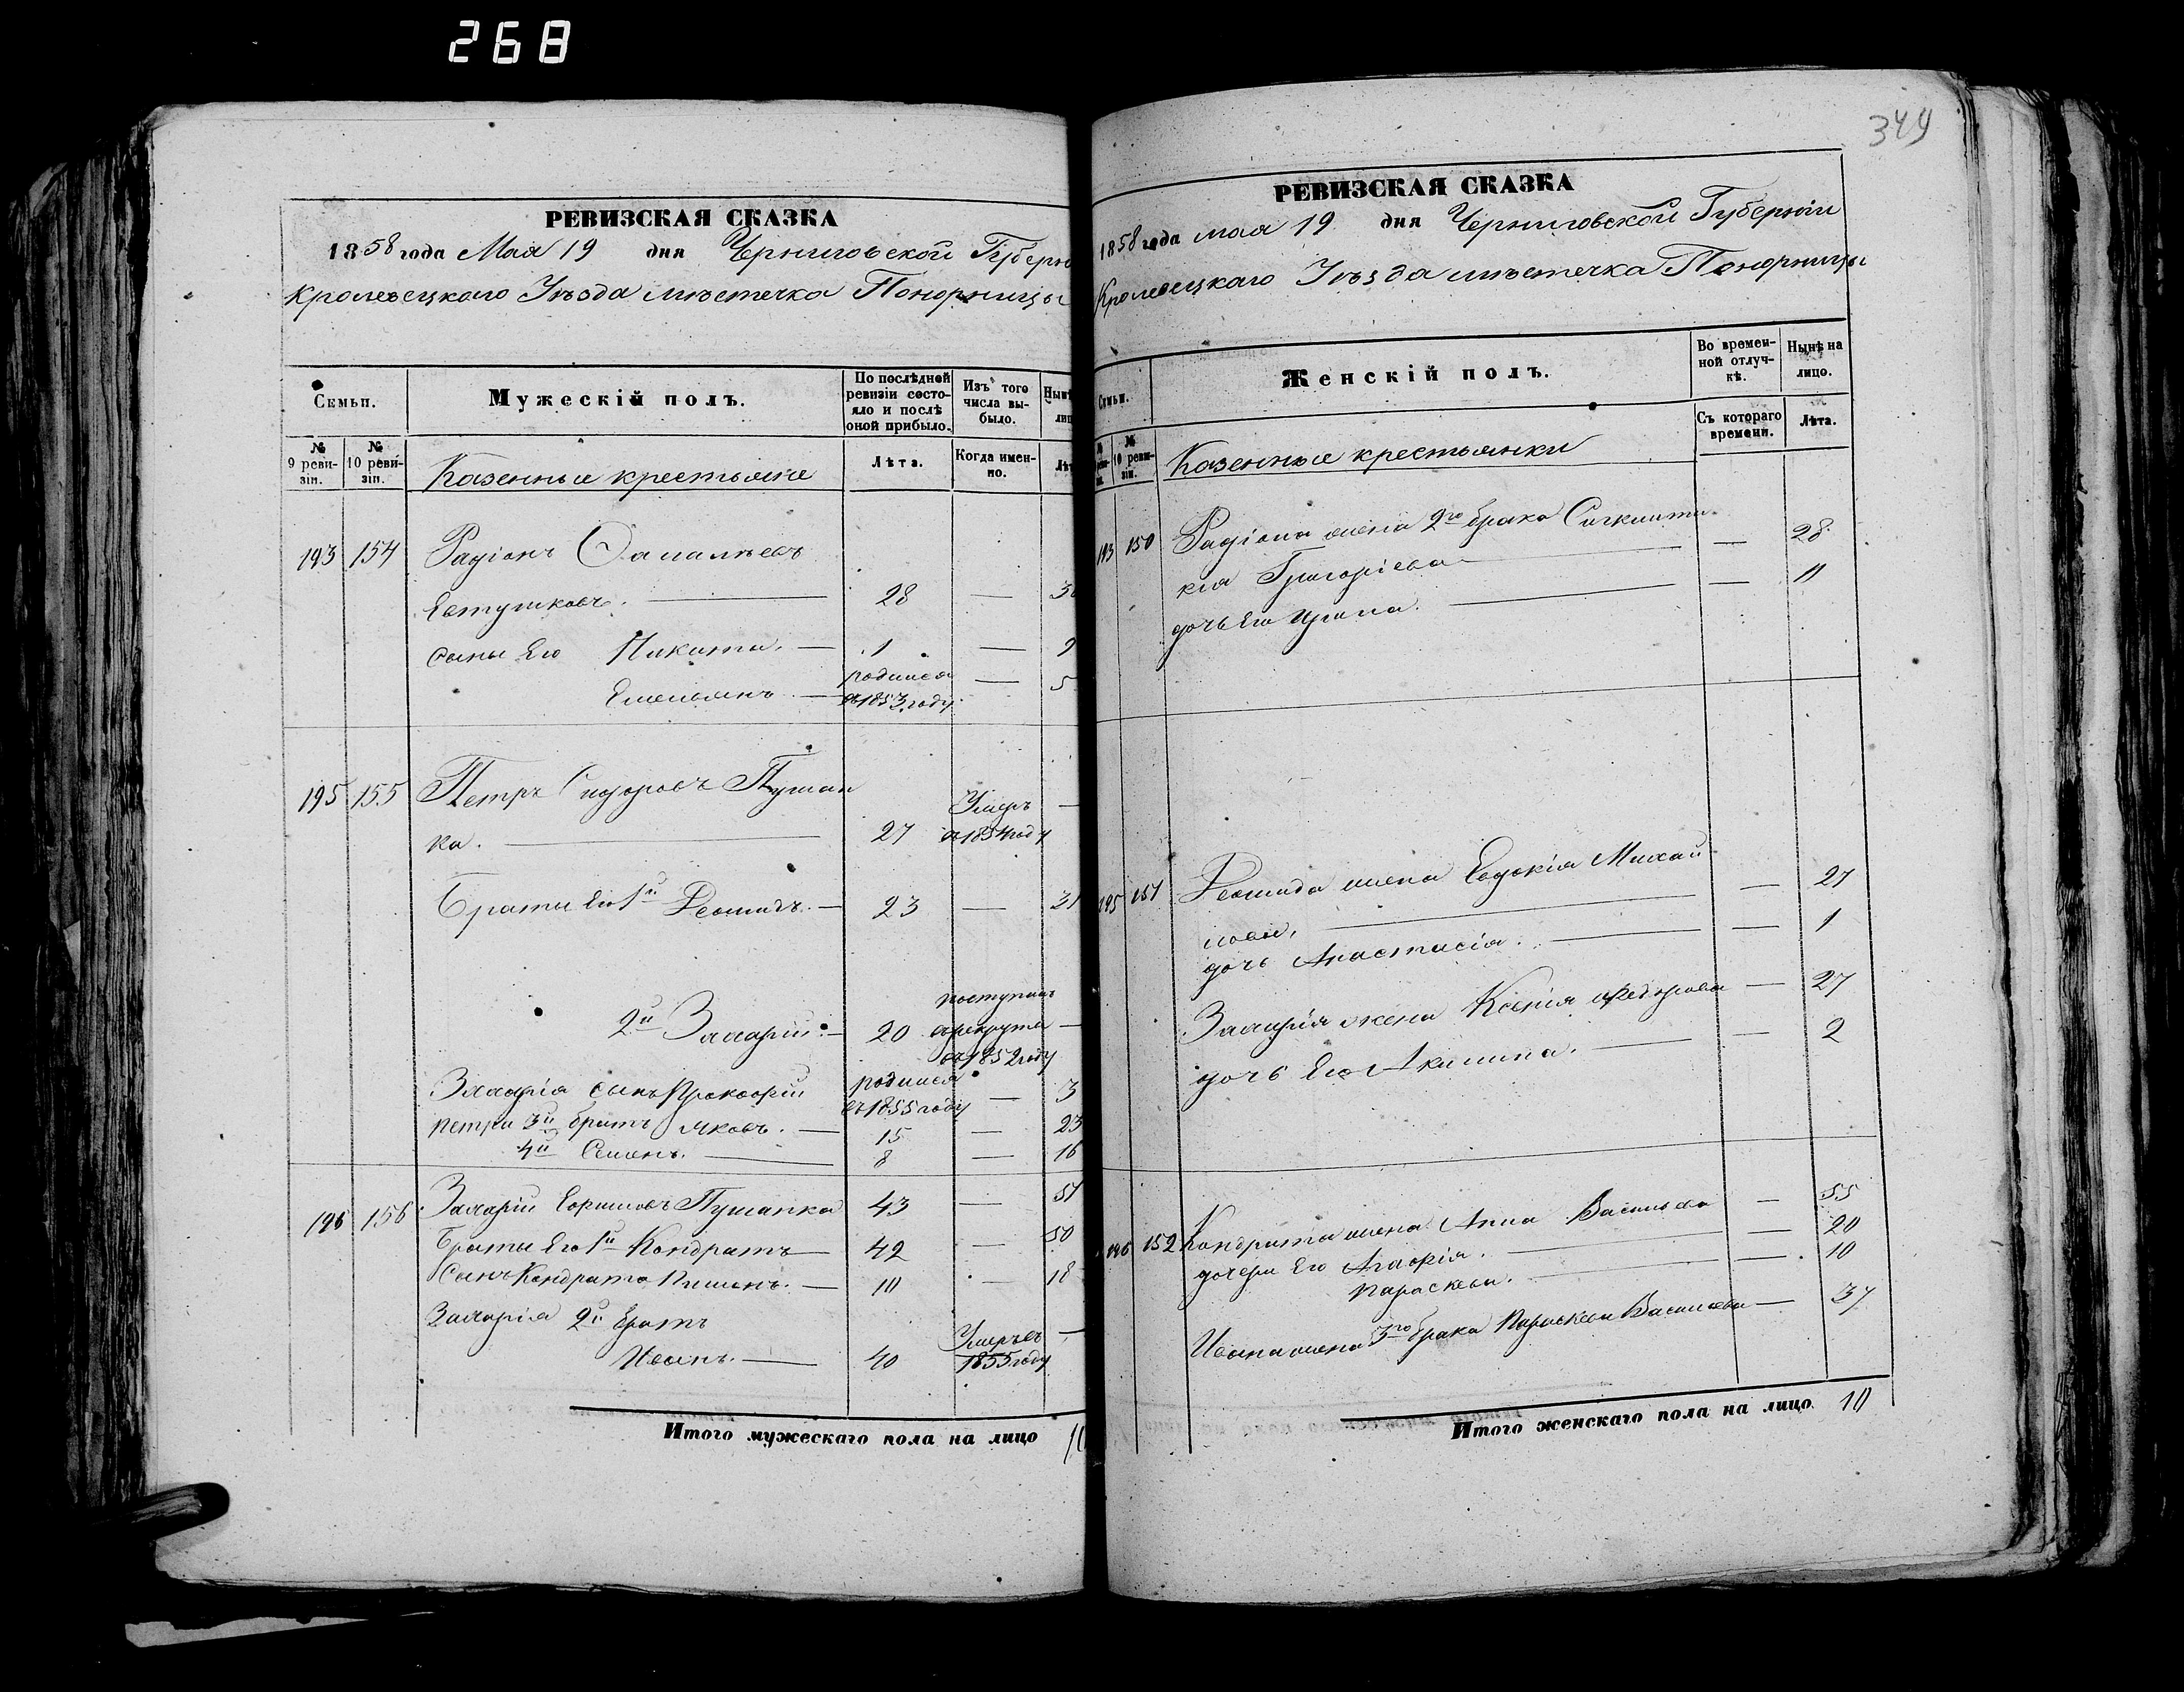 268
РЕВИЗСКАЯ СКАЗКА
1858 года Мая 19 дня Черниговской Губерн
Кролевецкаго Уѣзда мѣстечка Понорницы
Семьи.
Мужескій полъ.
По послѣдней ревизіи состояло и послѣ оной прибыло.
Изъ того числа выбыло.
Нынѣ
лиц
№ 9 ревизіи.
№ 10 ревизіи.
Казенные крестьяне
Лѣта.
Когда именно.
Лѣт
193 154 Радіонъ
Евтушковъ. — 28 — 3
сыны Его Никита. — 1 — 9
Емельянъ — родился въ 1853 году — 5
195 155 Петръ Сидоровъ Пушан
ка. — 27 Умеръ въ 1854 году —
Браты Его 1й Леонидъ. — 23 — 31
2й Захарій. — 20 поступилъ в рекруты въ 1852 году —
Захарія сынъ Прокофій родился въ 1855 году — 3
Петра 3й братъ Яковъ. — 15 — 23
4й Семенъ. — 8 — 16
196 156 Захарій Ефимовъ Пушанка 43 — 51
Браты Его 1й Кондратъ — 42 — 50
Сынъ Кондрата Пименъ. — 10 — 18
Захарія 2й братъ
Иванъ. — 40 Умеръ въ 1855 году —
Итого мужескаго пола на лицо 10
349
РЕВИЗСКАЯ СКАЗКА
1858 года мая 19 дня Черниговской Губерніи
Кролевецкаго Уѣзда мѣстечка Понорницы
Семьи.
Женскій полъ.
Во временной отлучкѣ.
Нынѣ на лицо.
№ 10 ревизіи.
Казенные крестьянки
Съ котораго времени.
Лѣта.
193 150 Радіона жена 2го брака
кія Григоріева — — 28
дочь Его Ирина. — — 11
195 151 Леонида жена Евдокія Михай
лова. — — 27
дочь Анастасія. — — 1
Захарія жена Ксенія Федорова — 27
дочь Его Акилина. — — 2
196 152 Кондрата жена Анна Васильева — 55
дочери Его Агафія. — — 20
Параскева. — — 10
Ивана жена 3го брака Параскева Васильева — 37
Итого женскаго пола на лицо 10